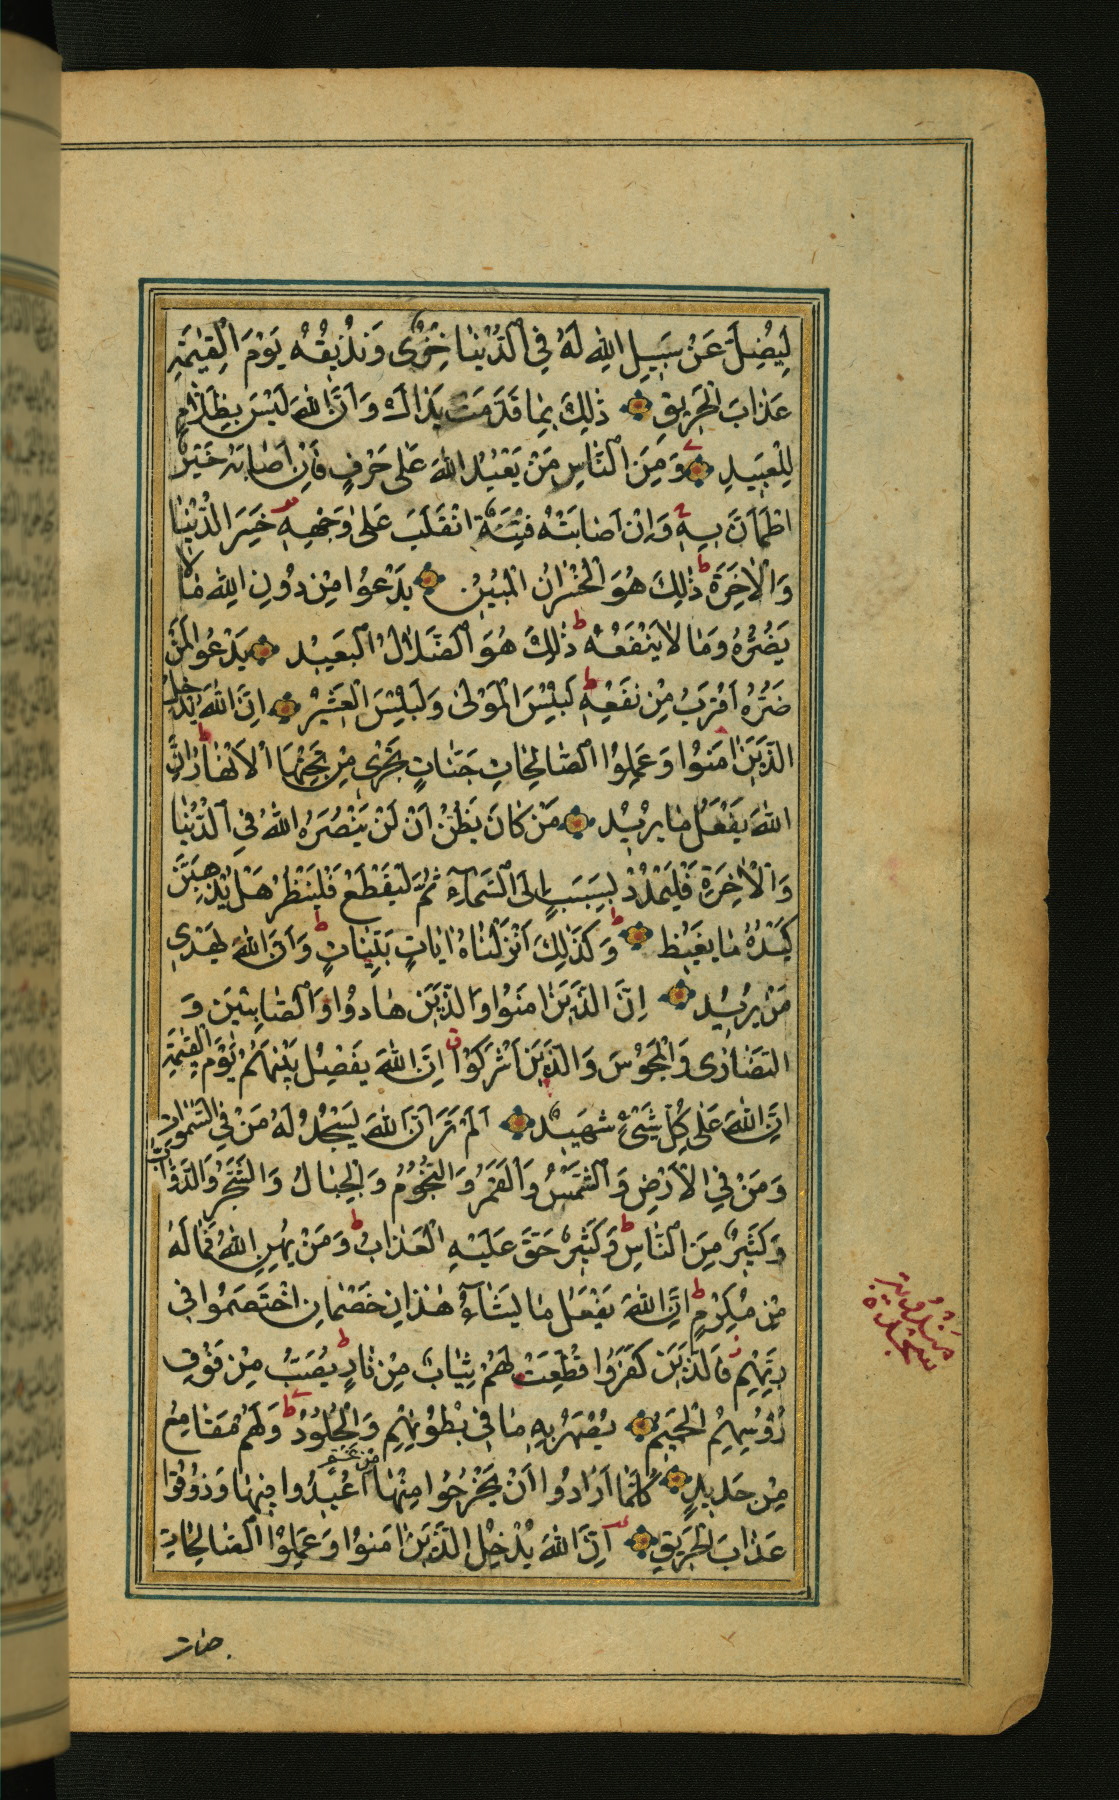 لِيُضِلَّ عَنْ سَبِيلِ اللّٰهِ لَهُ فِي الدُّنْيَا خِزْيٌ وَنُذِيقُهُ يَوْمَ الْقِيٰمَةِ
عَذَابَ الْحَرِيقِ ذٰلِكَ بِمَا قَدَّمَتْ يَدَاكَ وَاَنَّ اللّٰهَ لَيْسَ بِظَلَّامٍ
لِلْعَبِيدِ وَمِنَ النَّاسِ مَنْ يَعْبُدُ اللّٰهَ عَلٰى حَرْفٍ فَاِنْ اَصَابَهُ خَيْرٌ
اطْمَاَنَّ بِهِ وَاِنْ اَصَابَتْهُ فِتْنَةٌ انْقَلَبَ عَلٰى وَجْهِهِ خَسِرَ الدُّنْيَا
وَالْاٰخِرَةَ ذٰلِكَ هُوَ الْخُسْرَانُ الْمُبِينُ يَدْعُوا مِنْ دُونِ اللّٰهِ مَا لَا
يَضُرُّهُ وَمَا لَا يَنْفَعُهُ ذٰلِكَ هُوَ الضَّلَالُ الْبَعِيدُ يَدْعُوا لَمَنْ
ضَرُّهُ اَقْرَبُ مِنْ نَفْعِهِ لَبِئْسَ الْمَوْلٰى وَلَبِئْسَ الْعَشِيرُ اِنَّ اللّٰهَ يُدْخِلُ
الَّذِينَ اٰمَنُوا وَعَمِلُوا الصَّالِحَاتِ جَنَّاتٍ تَجْرِي مِنْ تَحْتِهَا الْاَنْهَارُ اِنَّ
اللّٰهَ يَفْعَلُ مَا يُرِيدُ مَنْ كَانَ يَظُنُّ اَنْ لَنْ يَنْصُرَهُ اللّٰهُ فِي الدُّنْيَا
وَالْاٰخِرَةِ فَلْيَمْدُدْ بِسَبَبٍ اِلَى السَّمَاۤءِ ثُمَّ لْيَقْطَعْ فَلْيَنْظُرْ هَلْ يُذْهِبَنَّ
كَيْدُهُ مَا يَغِيظُ وَكَذٰلِكَ اَنْزَلْنَاهُ اٰيَاتٍ بَيِّنَاتٍ وَاَنَّ اللّٰهَ يَهْدِي
مَنْ يُرِيدُ اِنَّ الَّذِينَ اٰمَنُوا وَالَّذِينَ هَادُوا وَالصَّابِئِينَ وَ
النَّصَارٰى وَالْمَجُوسَ وَالَّذِينَ اَشْرَكُوا اِنَّ اللّٰهَ يَفْصِلُ بَيْنَهُمْ يَوْمَ الْقِيٰمَةِ
اِنَّ اللّٰهَ عَلٰى كُلِّ شَيْءٍ شَهِيدٌ اَلَمْ تَرَ اَنَّ اللّٰهَ يَسْجُدُ لَهُ مَنْ فِي السَّمٰوَاتِ
وَمَنْ فِي الْاَرْضِ وَالشَّمْسُ وَالْقَمَرُ وَالنُّجُومُ وَالْجِبَالُ وَالشَّجَرُ وَالدَّوَاۤبُّ
وَكَثِيرٌ مِنَ النَّاسِ وَكَثِيرٌ حَقَّ عَلَيْهِ الْعَذَابُ وَمَنْ يُهِنِ اللّٰهُ فَمَا لَهُ
مِنْ مُكْرِمٍ اِنَّ اللّٰهَ يَفْعَلُ مَا يَشَاۤءُ هٰذَانِ خَصْمَانِ اخْتَصَمُوا فِي
رَبِّهِمْ فَالَّذِينَ كَفَرُوا قُطِّعَتْ لَهُمْ ثِيَابٌ مِنْ نَارٍ يُصَبُّ مِنْ فَوْقِ
رُؤُسِهِمُ الْحَمِيمُ يُصْهَرُ بِهِ مَا فِي بُطُونِهِمْ وَالْجُلُودُ وَلَهُمْ مَقَامِعُ
مِنْ حَدِيدٍ كُلَّمَا اَرَادُوا اَنْ يَخْرُجُوا مِنْهَا مِنْ غَمٍّ اُعِيدُوا فِيهَا وَذُوقُوا
عَذَابَ الْحَرِيقِ اِنَّ اللّٰهَ يُدْخِلُ الَّذِينَ اٰمَنُوا وَعَمِلُوا الصَّالِحَاتِ
جنات
سجدة